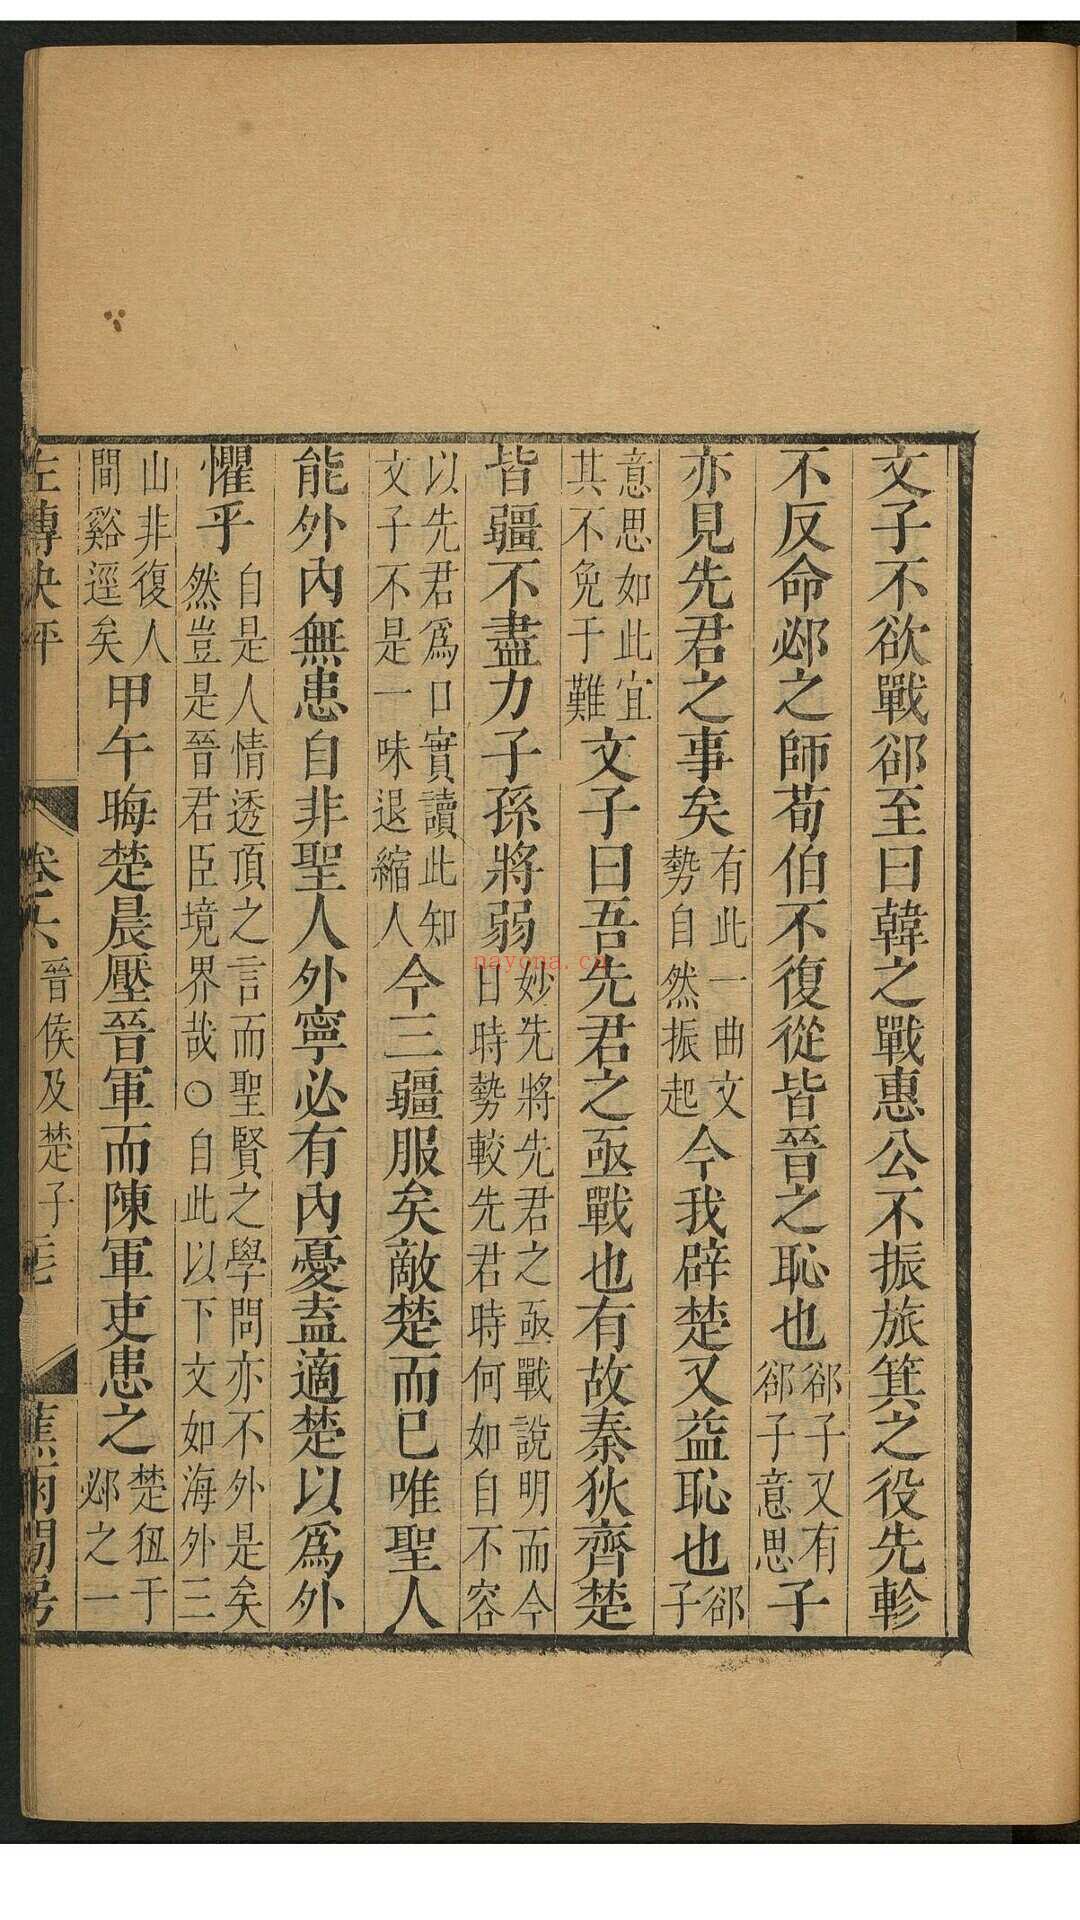 文子不欲戰郤至曰韓之戰惠公不振旅箕之役先軫
不反命邲之師荀伯不復從皆晉之恥也郤子又有郤子意思子
亦見先君之事矣有此一曲文勢自然振起今我辟楚又益恥也郤子
意思如此宜其不免于難文子曰吾先君之亟戰也有故秦狄齊楚
皆疆不盡力子孫將弱妙先將先君之亟戰說明而今日時勢較先君時何如自不容
以先君爲口實讀此知文子不是一味退縮人今三疆服矣敵楚而已唯聖人
能外內無患自非聖人外寧必有內憂盍適楚以爲外
懼乎自是人情透頂之言而聖賢之學問亦不外是矣然豈是晉君臣境界哉○自此以下文如海外三
山非復人間谿逕矣甲午晦楚晨壓晉軍而陳軍吏患之楚狃于邲之一
左傳快評
卷六
晉侯及楚子
蕉雨閒房
nayona.cn